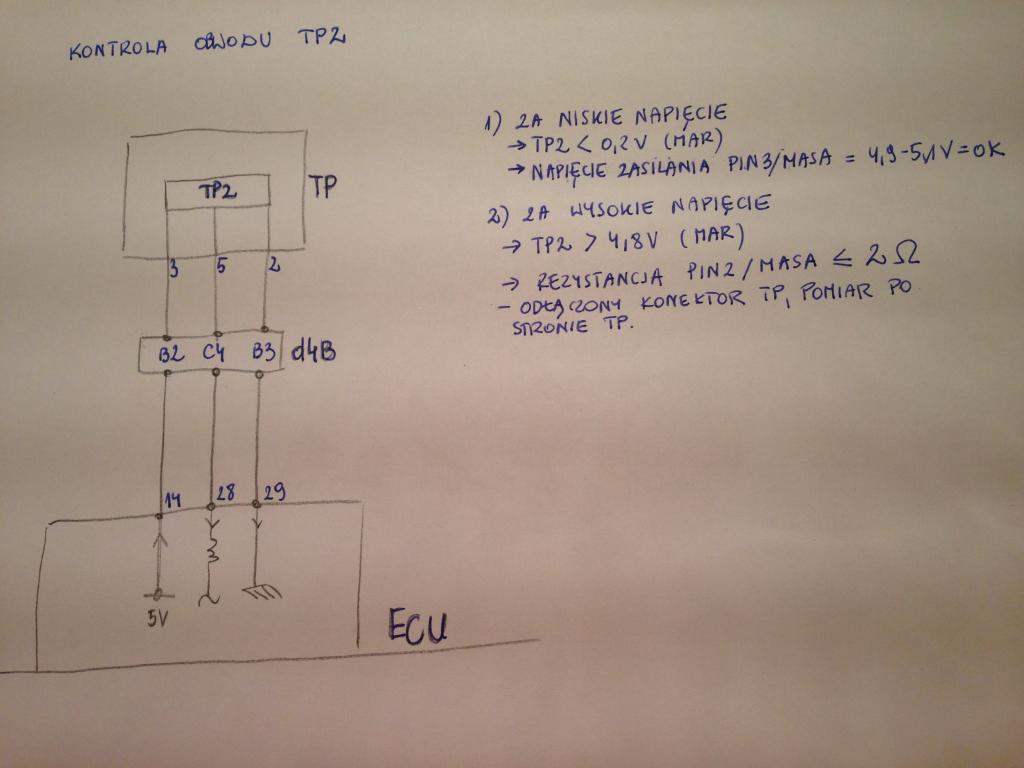 KONTROLA OBWODU TP2
1) ZA NISKIE NAPIĘCIE
→ TP2 < 0,2V (MAR)
→ NAPIĘCIE ZASILANIA PIN3/MASA = 4,9-5,1V = OK
2) ZA WYSOKIE NAPIĘCIE
→ TP2 > 4,8V (MAR)
→ REZYSTANCJA PIN2/MASA ≤ 2Ω
- ODŁĄCZONY KONEKTOR TP, POMIAR PO
STRONIE TP.
TP2 TP
3 5 2
B2 C4 B3 d4B
14 28 29
5V
ECU